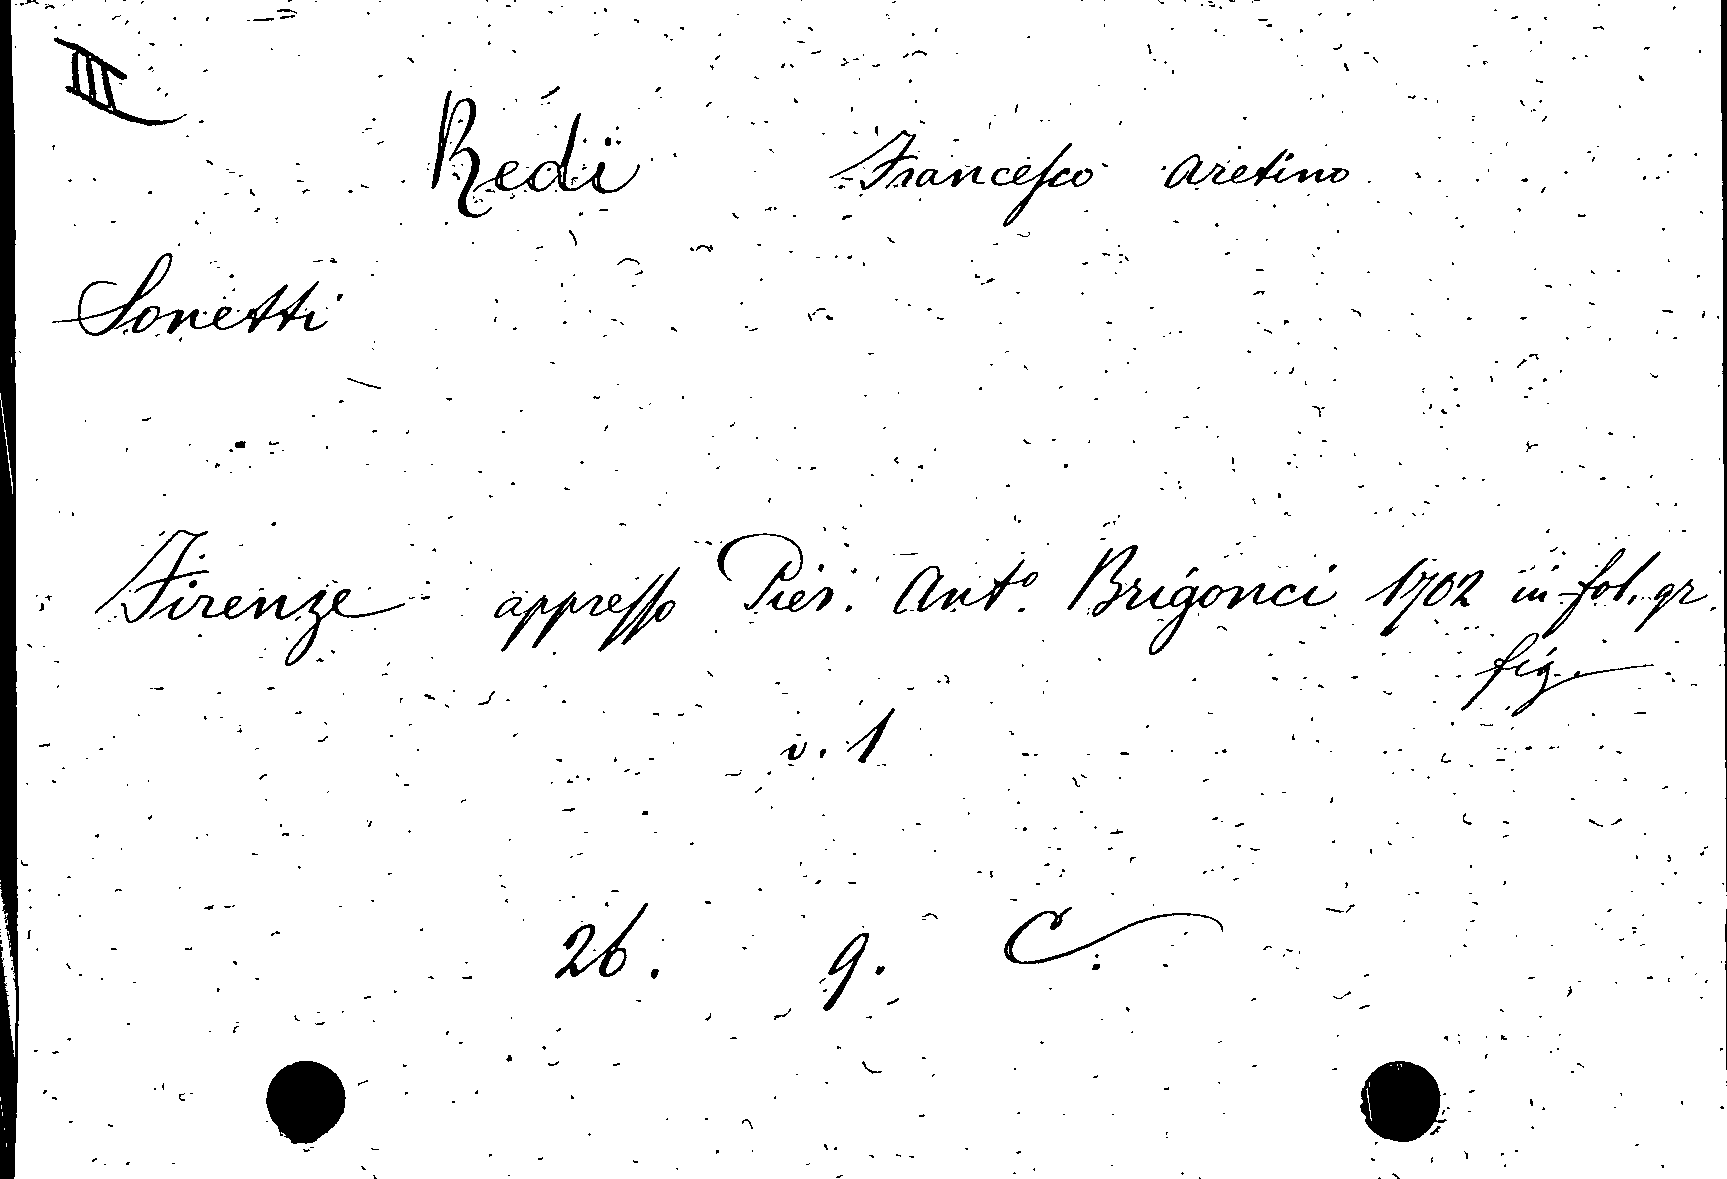 III
Redi Francesco aretino
Sonetti
Firenze appresso Pier. Ant.º Brigonci 1702 in fol. gr.
fig.
v. 1
26. 9. C.